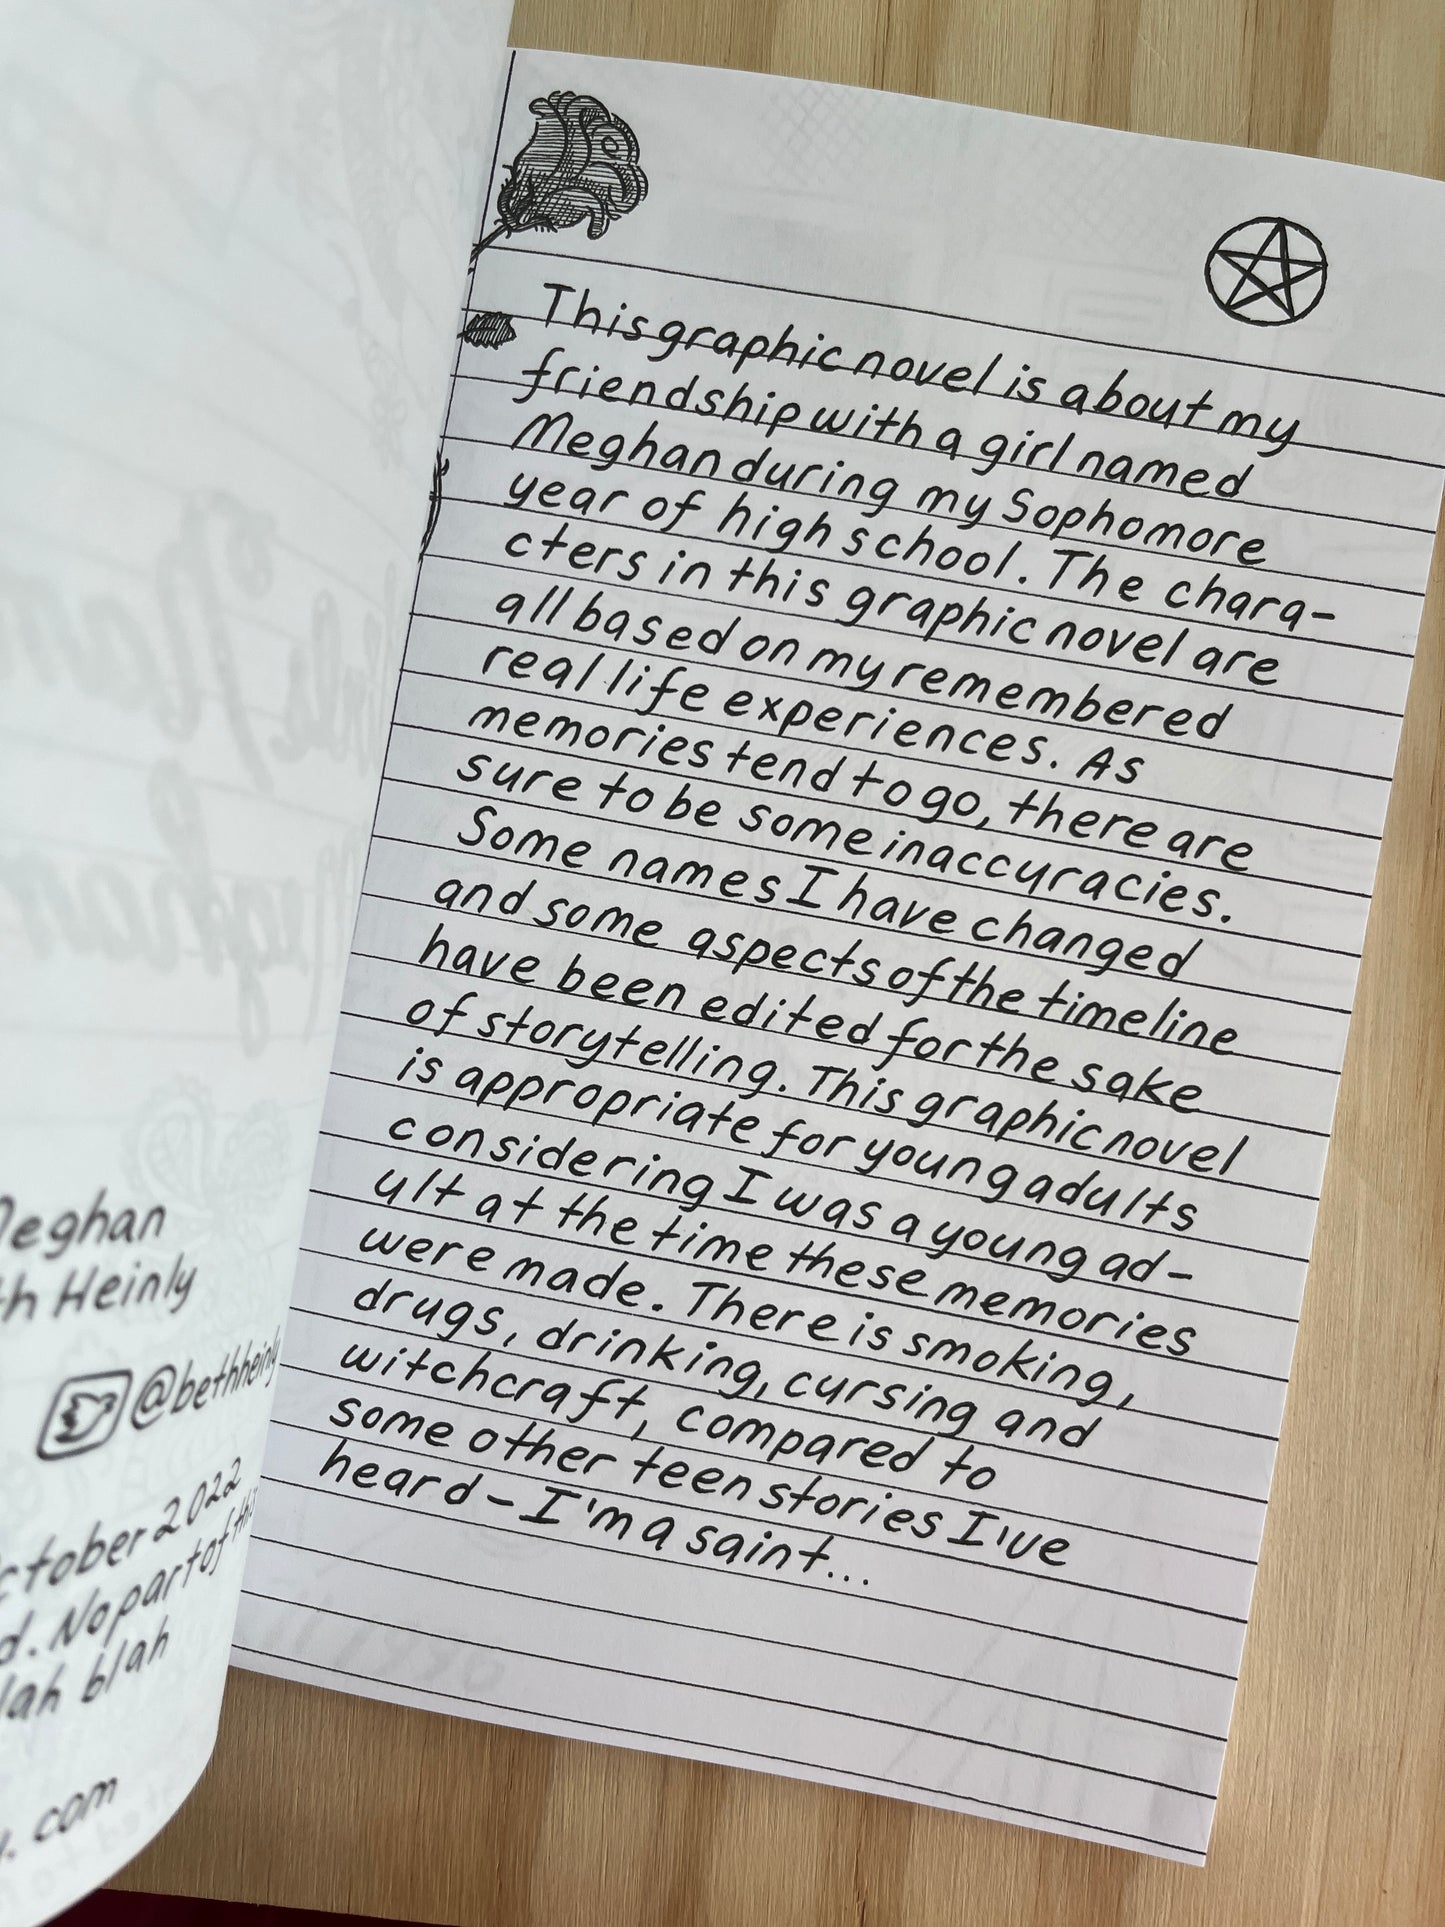 Meghan
Heinly
@bethheinly
October 2022
No part of this
blah
.com
This graphic novel is about my
friendship with a girl named
Meghan during my Sophomore
year of high school. The chara-
cters in this graphic novel are
all based on my remembered
real life experiences. As
memories tend to go, there are
sure to be some inaccuracies.
Some names I have changed
and some aspects of the timeline
have been edited for the sake
of storytelling. This graphic novel
is appropriate for young adults
considering I was a young ad-
ult at the time these memories
were made. There is smoking,
drugs, drinking, cursing and
witchcraft, compared to
some other teen stories I've
heard - I'm a saint...